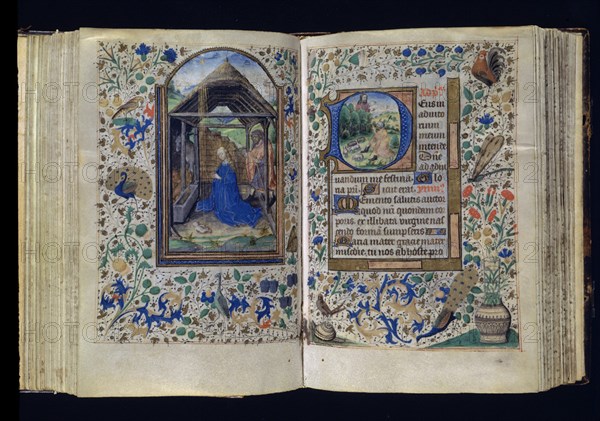 Deus in
adiuto
rium
meum
intende
Dñe
ad adiu
uandum me festina Glo
ria pri Sicut erat
Memento salutis auctor
quod nri quondam cor
poris ex illibata virgine nas
cendo formã sumpseris
Maria mater gracie mater
misericordie tu nos ab hoste pro